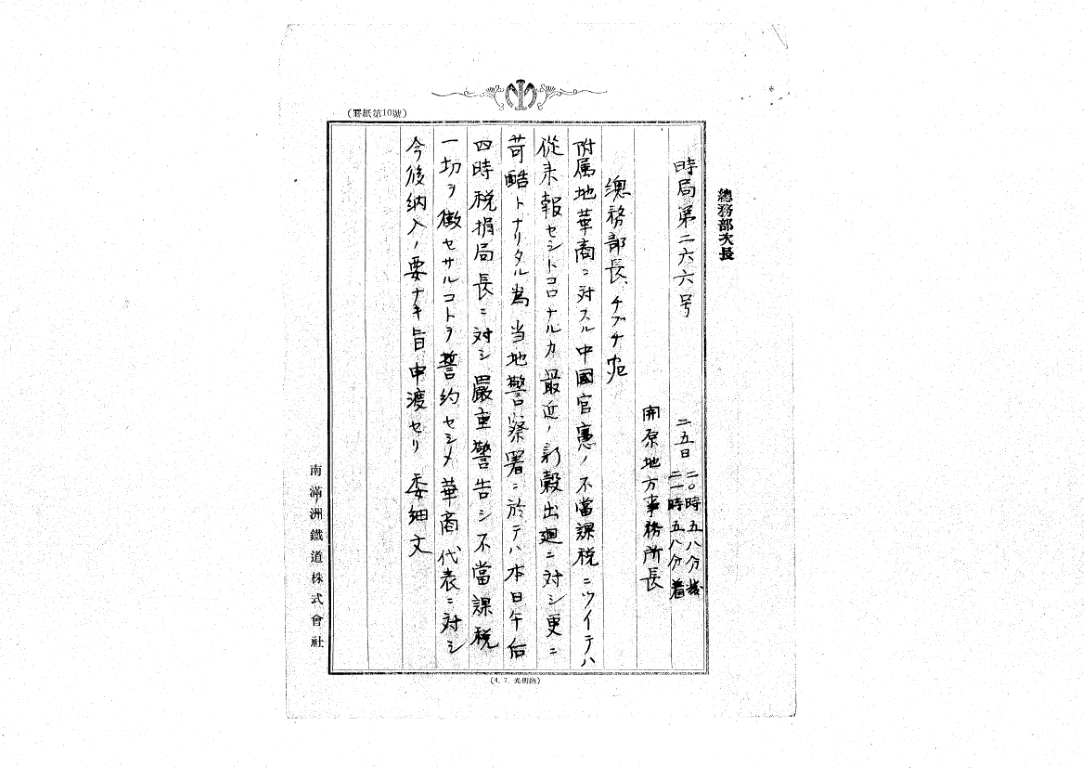 (罫紙第10號)
總務部次長
時局第二六六号
二五日二〇時五八分發
二一時五八分着
開原地方事務所長
總務部長、チブチ宛
附属地華商ニ対スル中國官憲ノ不當課税ニツイテハ
從来報セシトコロナルカ最近ノ新穀出廻ニ対シ更ニ
苛酷トナリタル為当地警察署ニ於テハ本日午后
四時税捐局長ニ対シ嚴重警告シ不當課税
一切ヲ徴セサルコトヲ誓約セシメ華商代表ニ対シ
今後納入ノ要ナキ旨申渡セリ 委細文
南滿洲鐵道株式會社
(4. 7. 光明納)